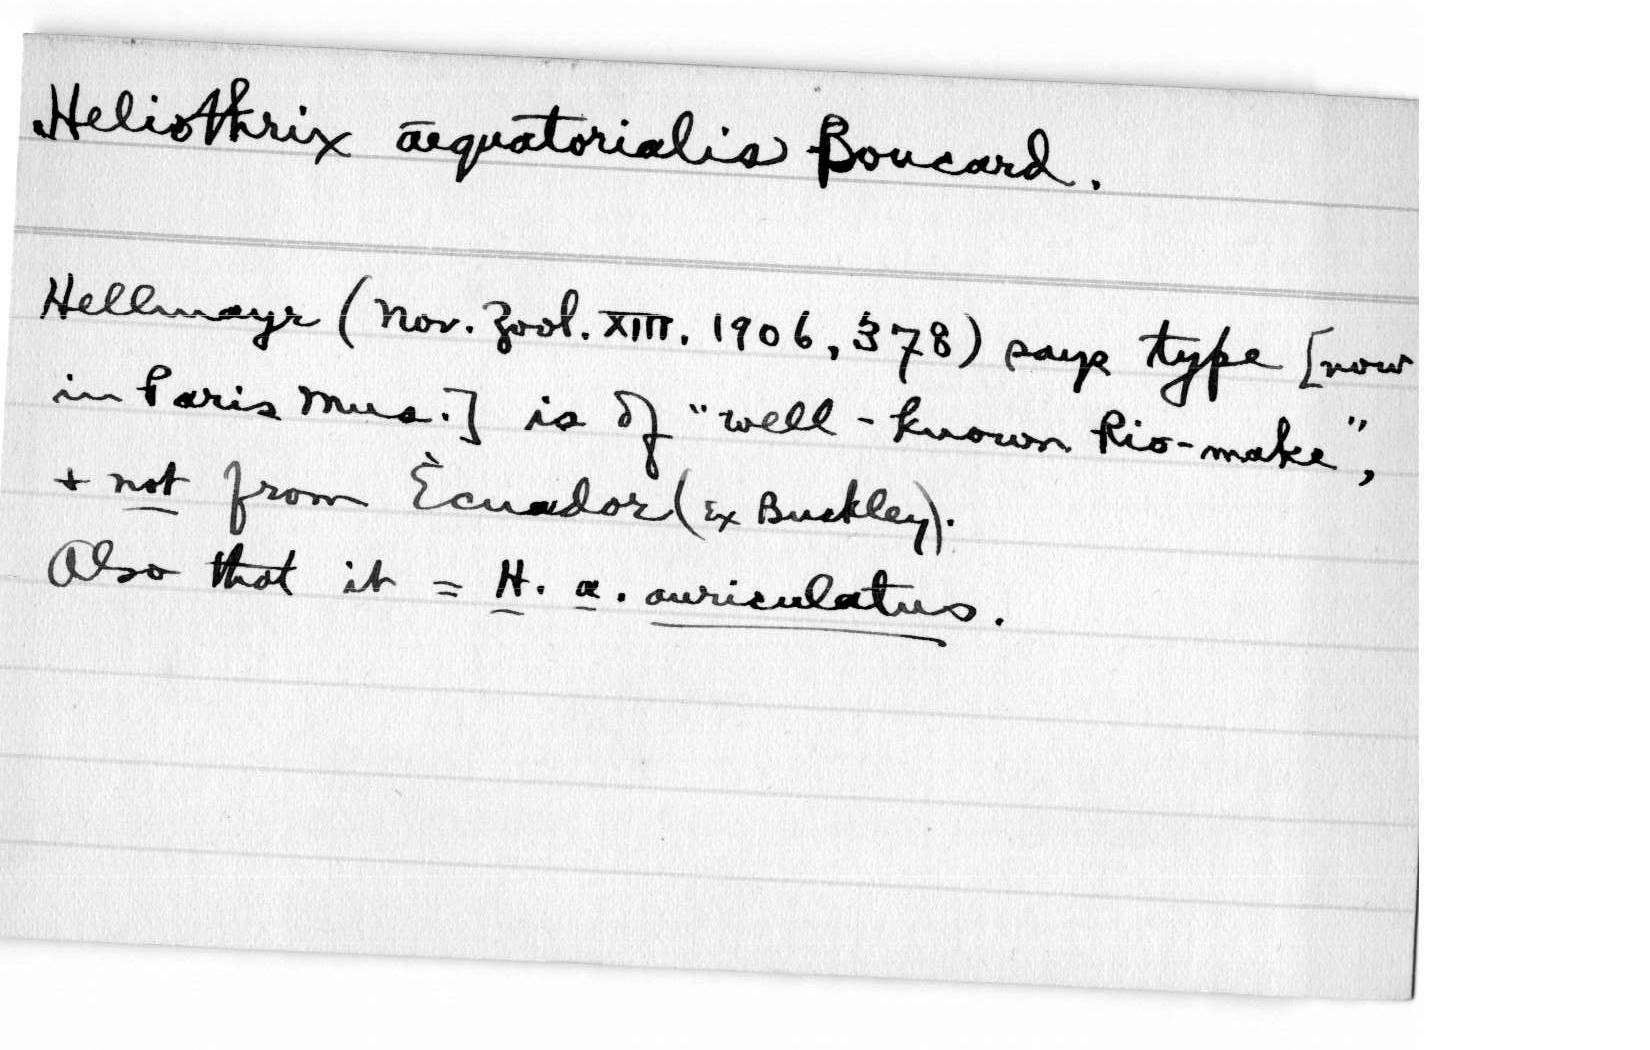 Heliothrix aequatorialis Boucard.
Hellmayr (Nov. Zool. XIII. 1906, 378) says type [now
in Paris Mus.] is of "well-known Rio-make",
+ not from Ècuador (Ex Buckley).
Also that it = H. a. auriculatus.